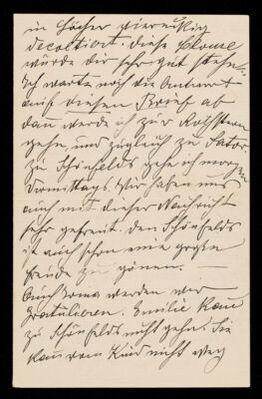 in Löcher viereckig
decoltiert. diese Blouse
würde dir sehr gut stehn.
Ich warte noch die Antwort
auf diesen Brief ab
dan werde ich zur
gehn, und zugleich zu
zu Schönfelds gehe ich morgen
Vormittags. Wir haben uns
auch mit dieser Nachricht
sehr gefreut. den Schönfelds
ist auch schon eine große
freude zu gönnen. —
Auch werden wir
gratulieren. Emilie kan
zu Schönfelds nicht gehn. Sie
kan vom Kind nicht weg